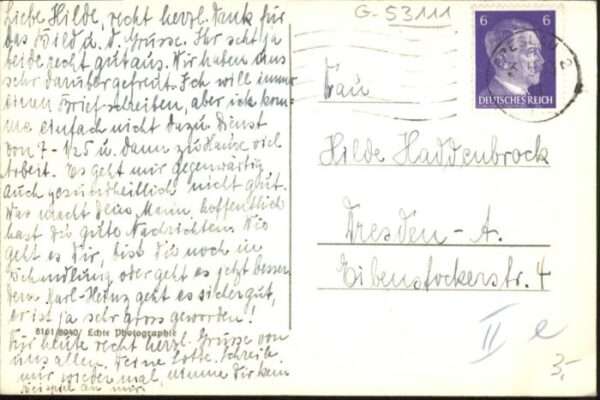 Liebe Hilde, recht herzl. Dank für
das Bild u. d. Grüsse. Ihr seht ja
beide recht gut aus. Wir haben uns
sehr darüber gefreut. Ich will immer
einen Brief schreiben, aber ich kom-
me einfach nicht dazu. Dienst
von 7 - 1/25 u. dann zu Hause viel
Arbeit. Es geht mir gegenwärtig
auch gesundheitlich nicht gut.
Was macht Dein Mann, hoffentlich
hast Du gute Nachrichten. Wie
geht es Dir, bist Du noch in
Behandlung oder geht es jetzt besser
Dem Karl-Heinz geht es sicher gut,
er ist ja sehr gross geworden!
8161 Echte Photographie
Für heute recht herzl. Grüsse von
uns allen. Deine Lotte. Schreibe
mir wieder mal, nimm Dir kein
Beispiel an mir.
G-53111
6 6
DEUTSCHES REICH
2
Frau
Hilde Haddenbrock
Dresden-A.
Eibenstockerstr. 4
II e
3,-